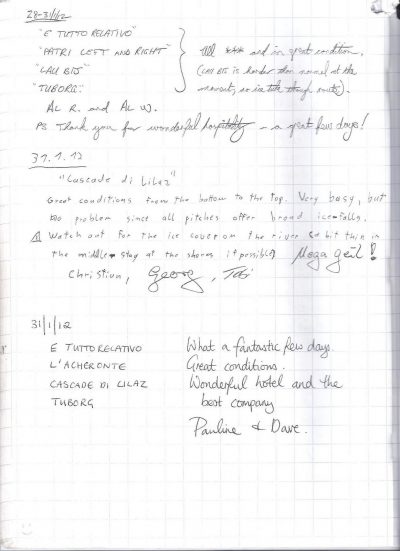 28-31/1/12
"E TUTTO RELATIVO"
"PATRI LEFT AND RIGHT"
"LAU BIJ"
"TUBORG"
All *** and in great condition.
(LAU BIJ is harder than normal at the
moment, as is the though route).
AL R. and AL W.
PS Thank you for wonderful hospitality - a great few days!
31.1.12
"Cascade di Lilaz"
Great conditions from the bottom to the top. Very busy, but
no problem since all pitches offer broad icefalls.
⚠ Watch out for the ice cover on the river (a bit thin in
the middle → stay at the shores if possible) Mega geil!
Christian, Georg,
31/1/12
E TUTTO RELATIVO
L'ACHERONTE
CASCADE DI LILAZ
TUBORG
What a fantastic few days.
Great conditions.
Wonderful hotel and the
best company
Pauline & Dave.